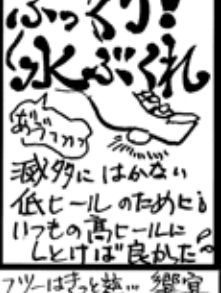 ぷっくり!
水ぶくれ
あ゛づっっっ
滅多にはかない
低ヒールのためにも
いつもの高ヒールに
しとけば良かった
フツーはきっと
饗宴